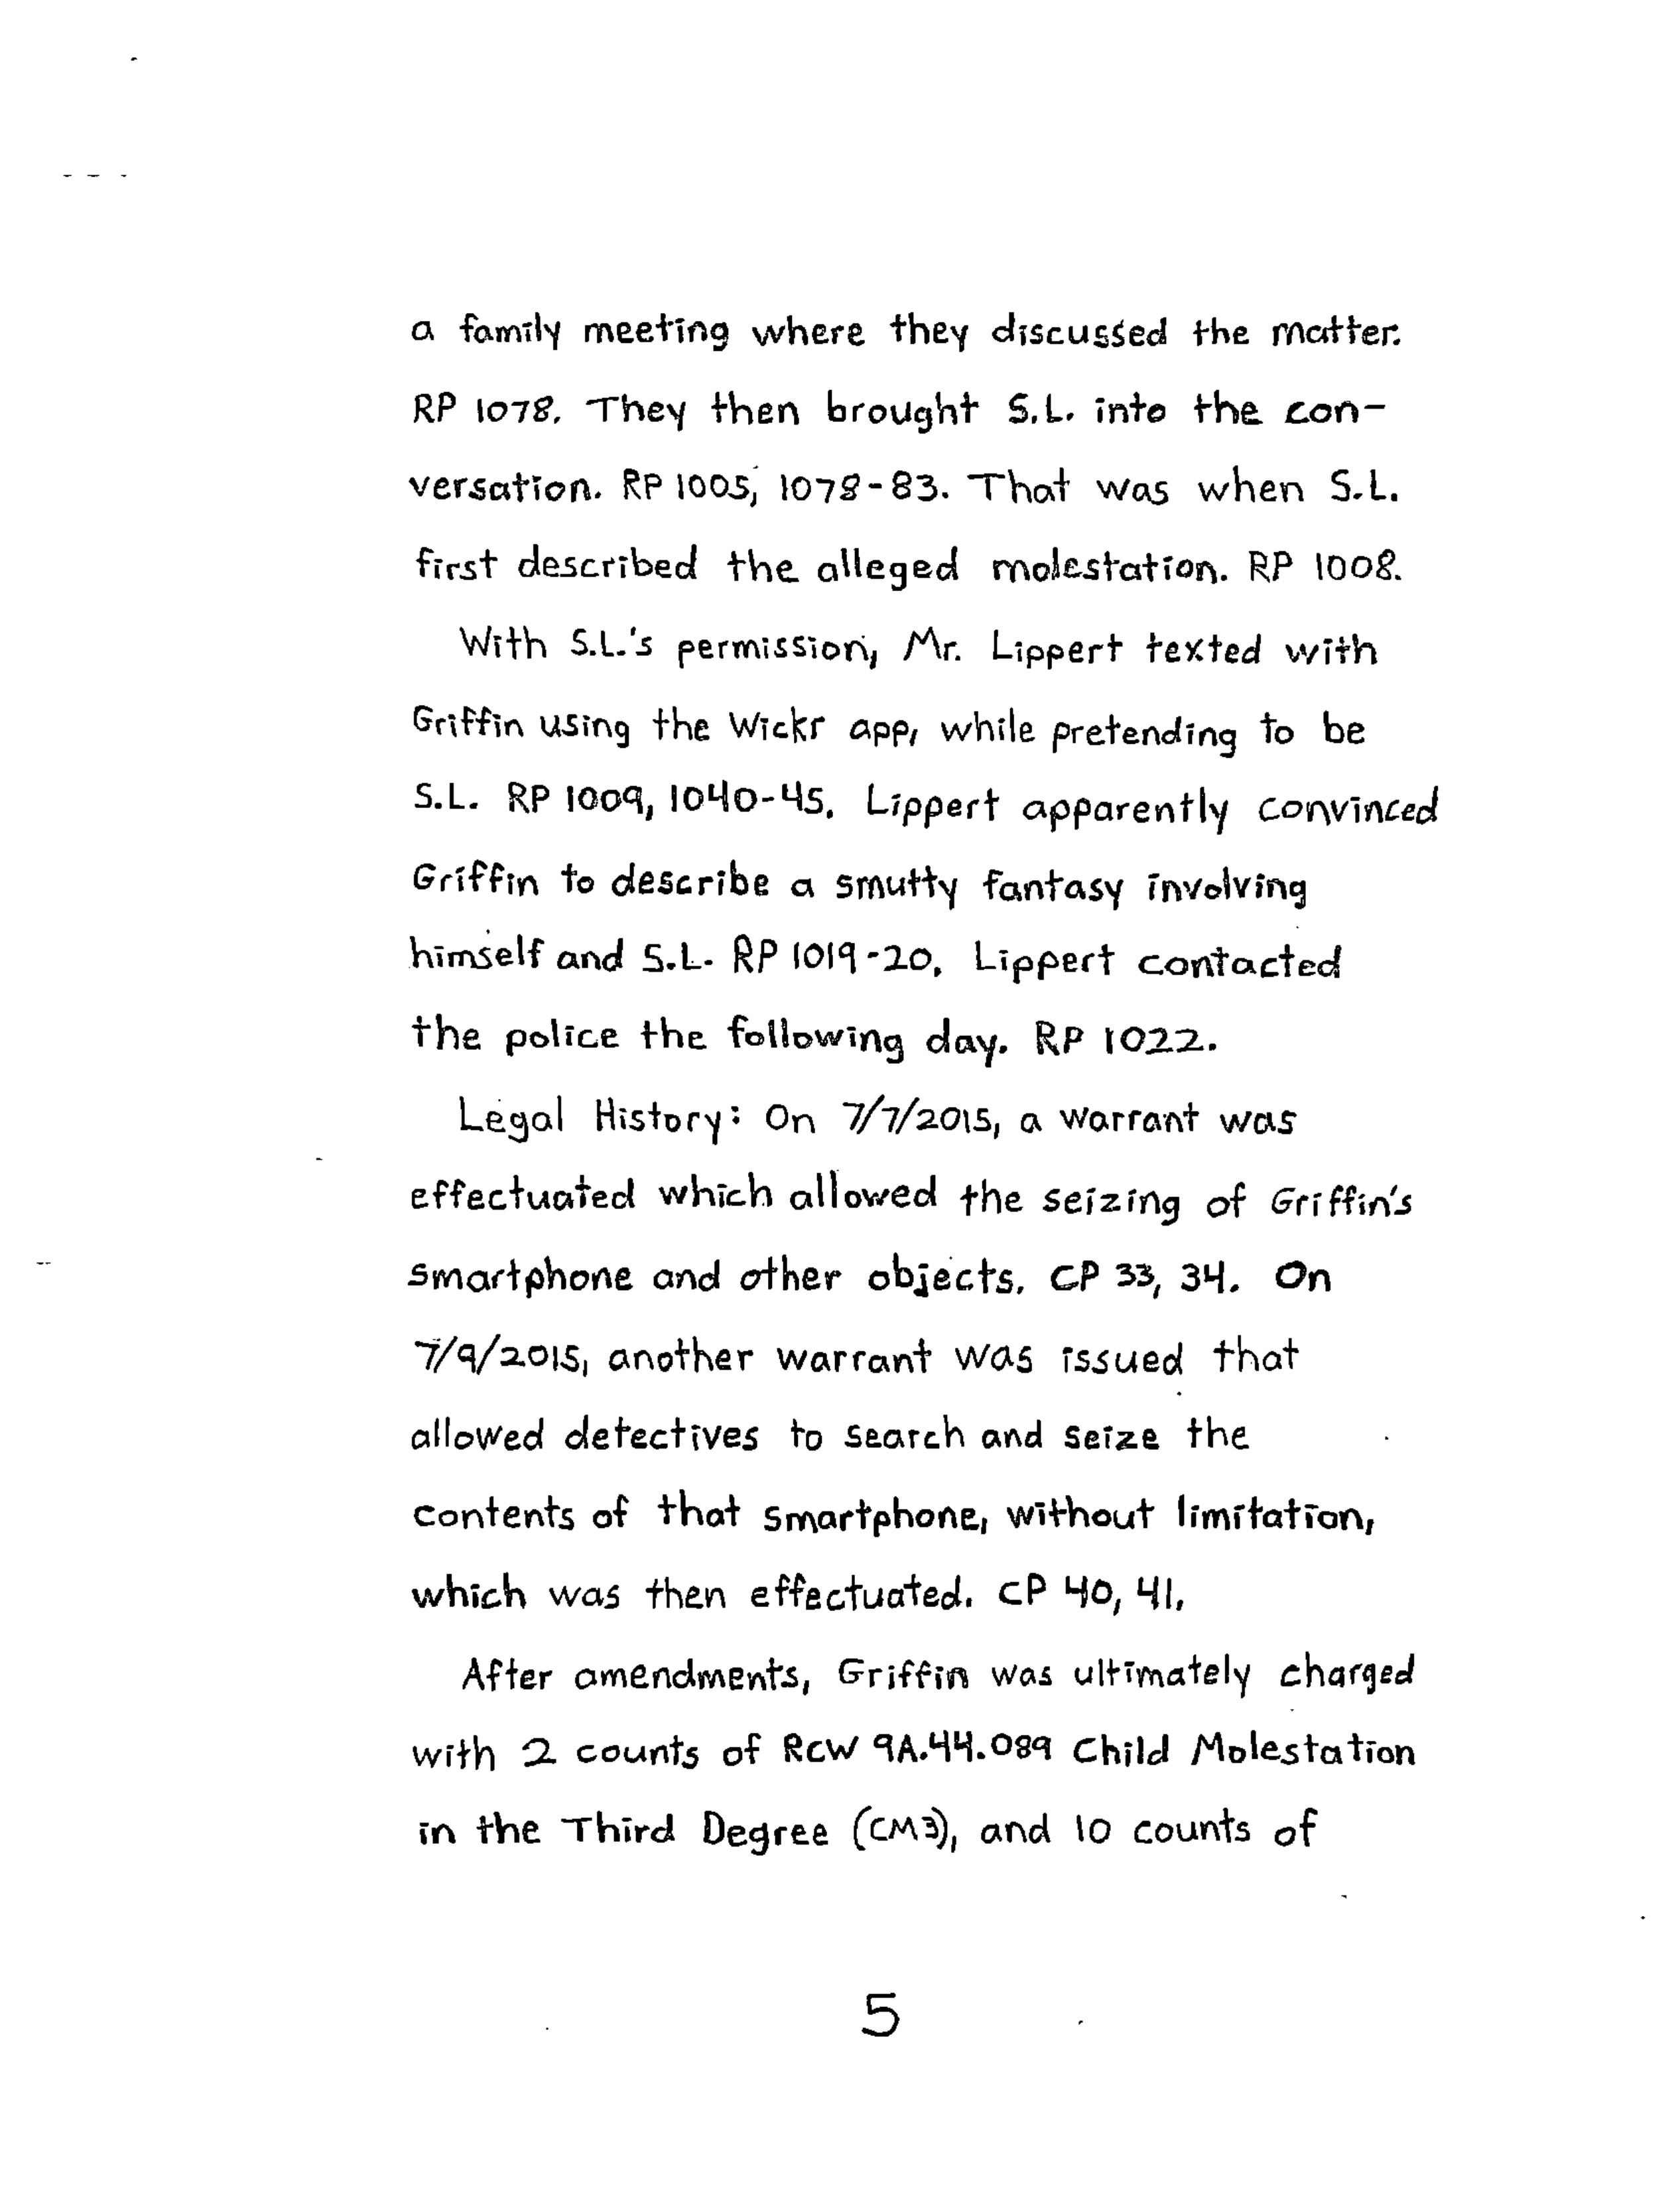 a family meeting where they discussed the matter.
RP 1078. They then brought S.L. into the con-
versation. RP 1005, 1078-83. That was when S.L.
first described the alleged molestation. RP 1008.
With S.L.'s permission, Mr. Lippert texted with
Griffin using the Wickr app, while pretending to be
S.L. RP 1009, 1040-45. Lippert apparently convinced
Griffin to describe a smutty fantasy involving
himself and S.L. RP 1019-20. Lippert contacted
the police the following day. RP 1022.
Legal History: On 7/7/2015, a warrant was
effectuated which allowed the seizing of Griffin's
smartphone and other objects. CP 33, 34. On
7/9/2015, another warrant was issued that
allowed detectives to search and seize the
contents of that smartphone, without limitation,
which was then effectuated. CP 40, 41.
After amendments, Griffin was ultimately charged
with 2 counts of RCW 9A.44.089 Child Molestation
in the Third Degree (CM3), and 10 counts of
5